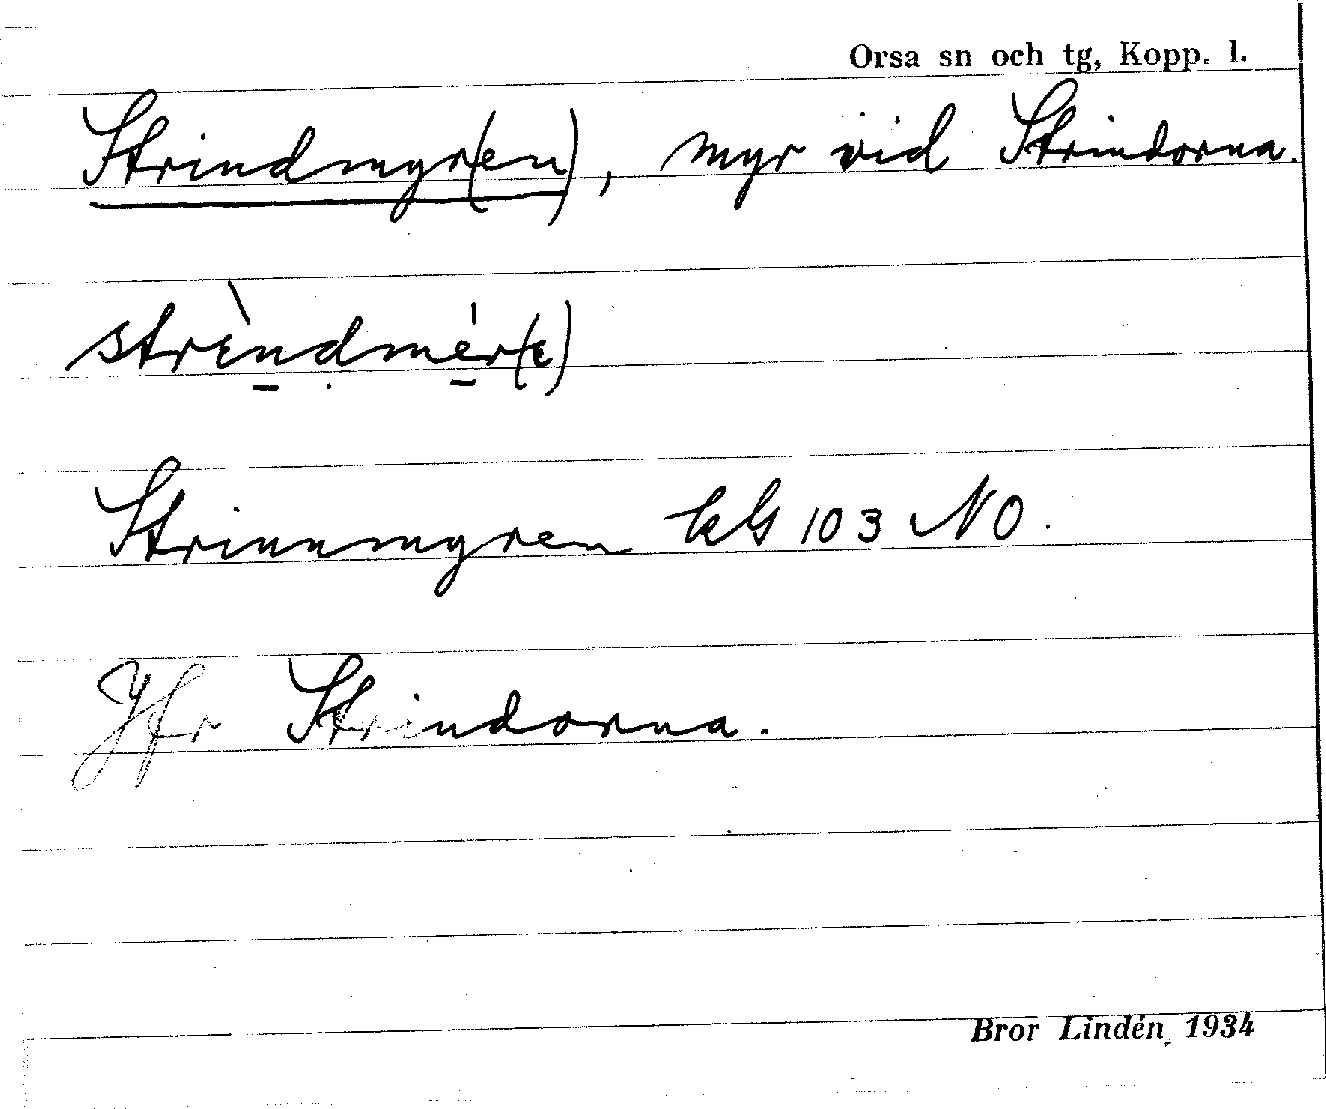 Orsa sn och tg, Kopp. l.
Strindmyr(en), myr vid Strindorna.
strìndmér(e)
Strinnmyren kG 103 NO.
Jfr Strindorna.
Bror Lindén, 1934